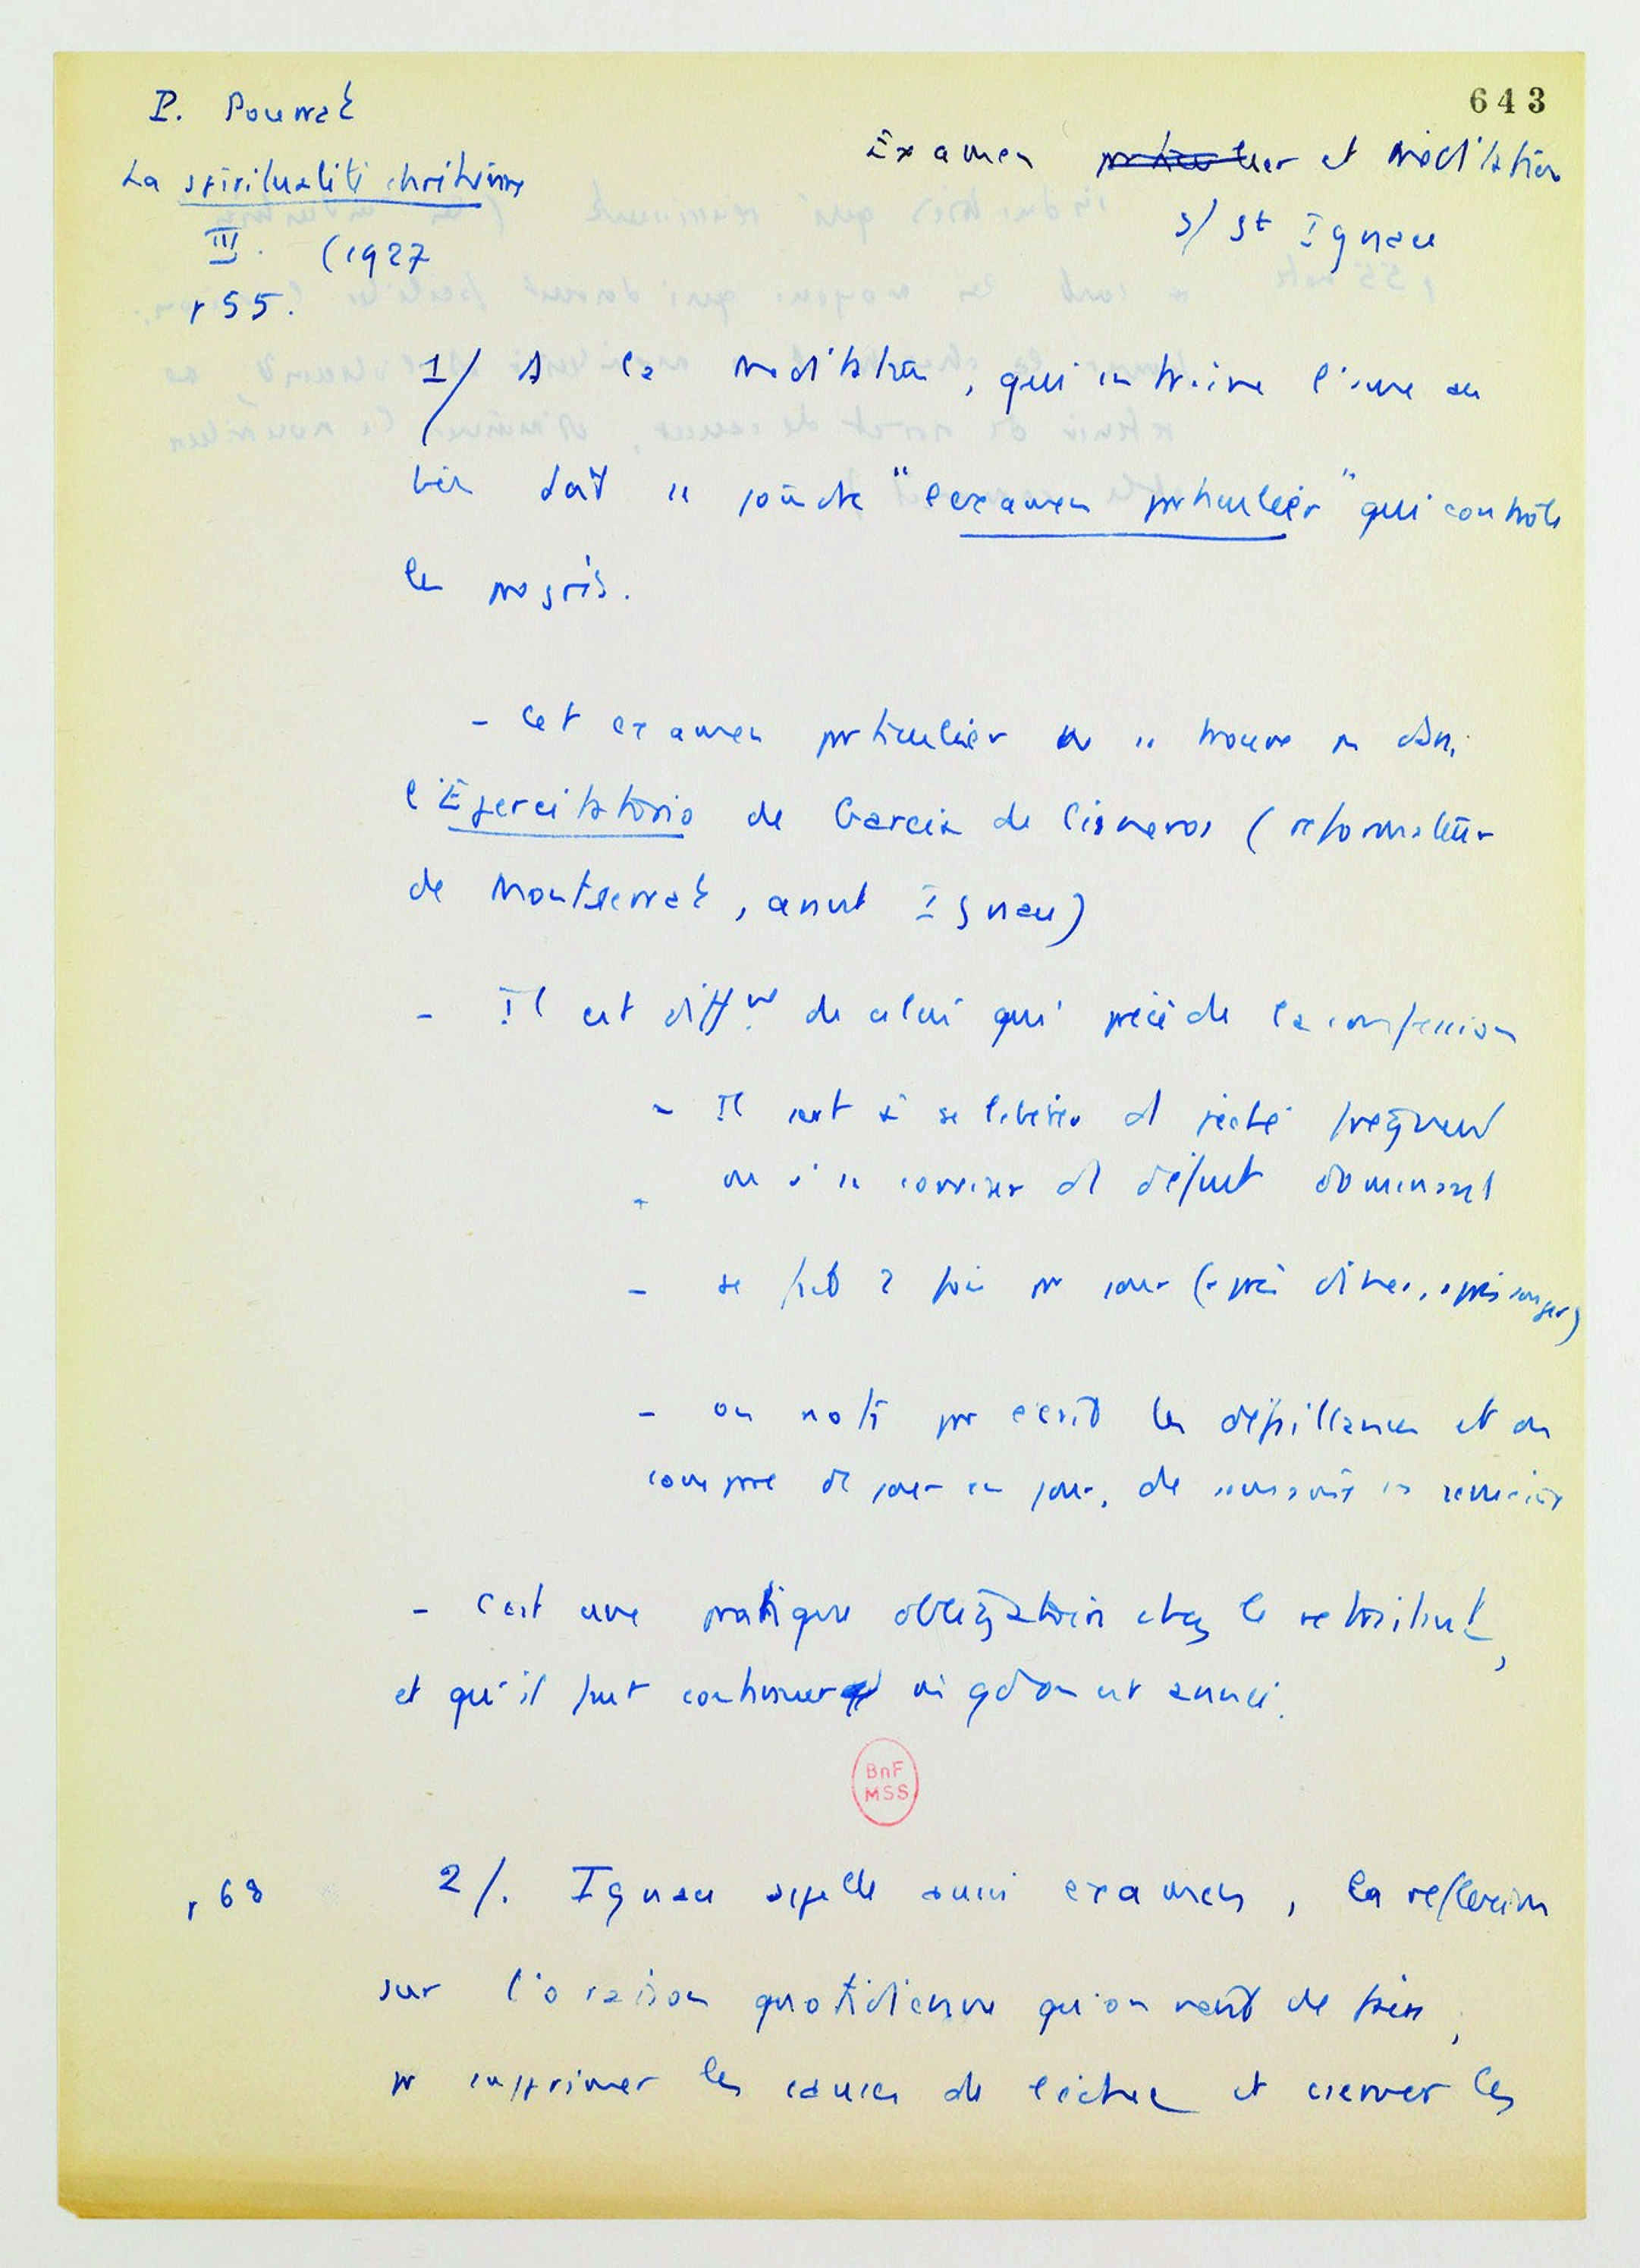 643
P. Pourrat
La spiritualité chrétienne
III. (1927
p 55.
Examen particulier et méditation
s/ St Ignace
1/ A la méditation, qui entraîne l'âme au
bien doit se joindre "l'examen particulier" qui contrôle
les progrès.
- Cet examen particulier ne se trouve pas dans
l'Ejercitatorio de Garcia de Cisneros (reformateur
de Montserrat, avant Ignace)
- Il est difft de celui qui précède la confession
- Il sert à se libérer d péché fréquent
ou à se corriger d défaut dominant
- se fait 2 fois pr jour (après dîner, après souper)
- on note par écrit les défaillances et on
compare de jour en jour, de semaine en semaine
- C'est une pratique obligatoire chez le retraitant,
et qu'il faut continuer
p 68
2/. Ignace appelle aussi examen, la reflexion
sur l'oraison quotidienne qu'on vient de faire,
pr supprimer les causes de l'échec et conserver les
BnF
MSS